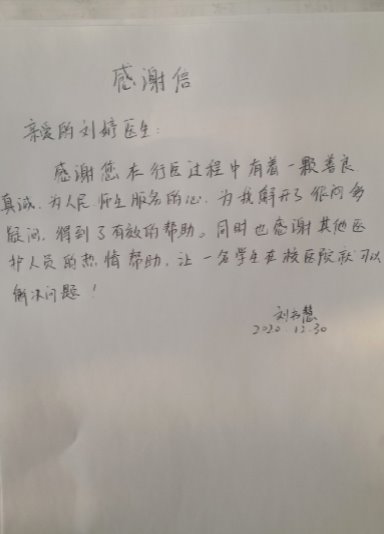 感谢信
亲爱的刘婷医生:
感谢您在行医过程中有着一颗善良
真诚、为人民师生服务的心,为我解开了很多
疑问,得到了有效的帮助。同时也感谢其他医
护人员的热情帮助,让一名学生在校医院就可以
解决问题!
刘书慧
2020.12.30